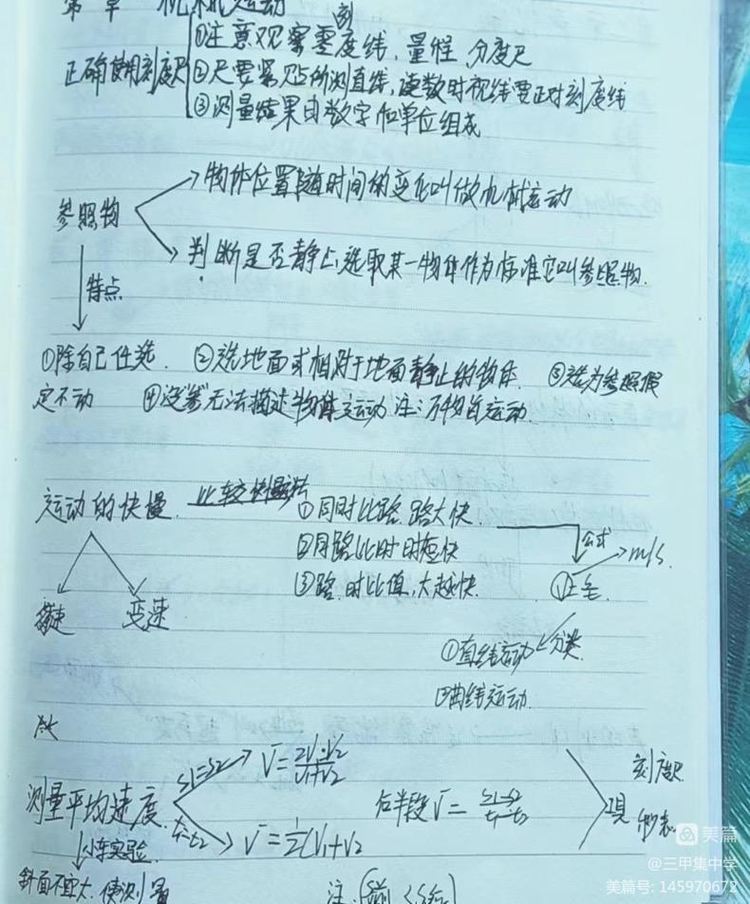 第 章 机械运动
正确使用刻度尺
①注意观察零刻度线, 量程, 分度尺
②尺要紧贴所测直线, 读数时视线要正对刻度线
③测量结果由数字和单位组成
参照物
物体位置随时间的变化叫做机械运动
判断是否静止,选取某一物体作为标准它叫参照物.
特点
①除自己任选. ②选地面或相对于地面静止的物体. ③选为参照假
定不动 ④没参无法描述物体运动 注:万物皆运动.
运动的快慢.
①同时比路.路大快.
②同路比时 时短快
③路.时比值,大越快.
公式
m/s.
变速
①直线运动
分类.
②曲线运动.
测量平均速度.
S1=S2
V̄=2V1·V2/V1+V2
t1=t2
V̄=1/2(V1+V2
后半段V̄=
刻度尺
秒表
小车实验.
斜面不宜太大. 使测量
注.
美篇
@三甲集中学
美篇号: 145970672